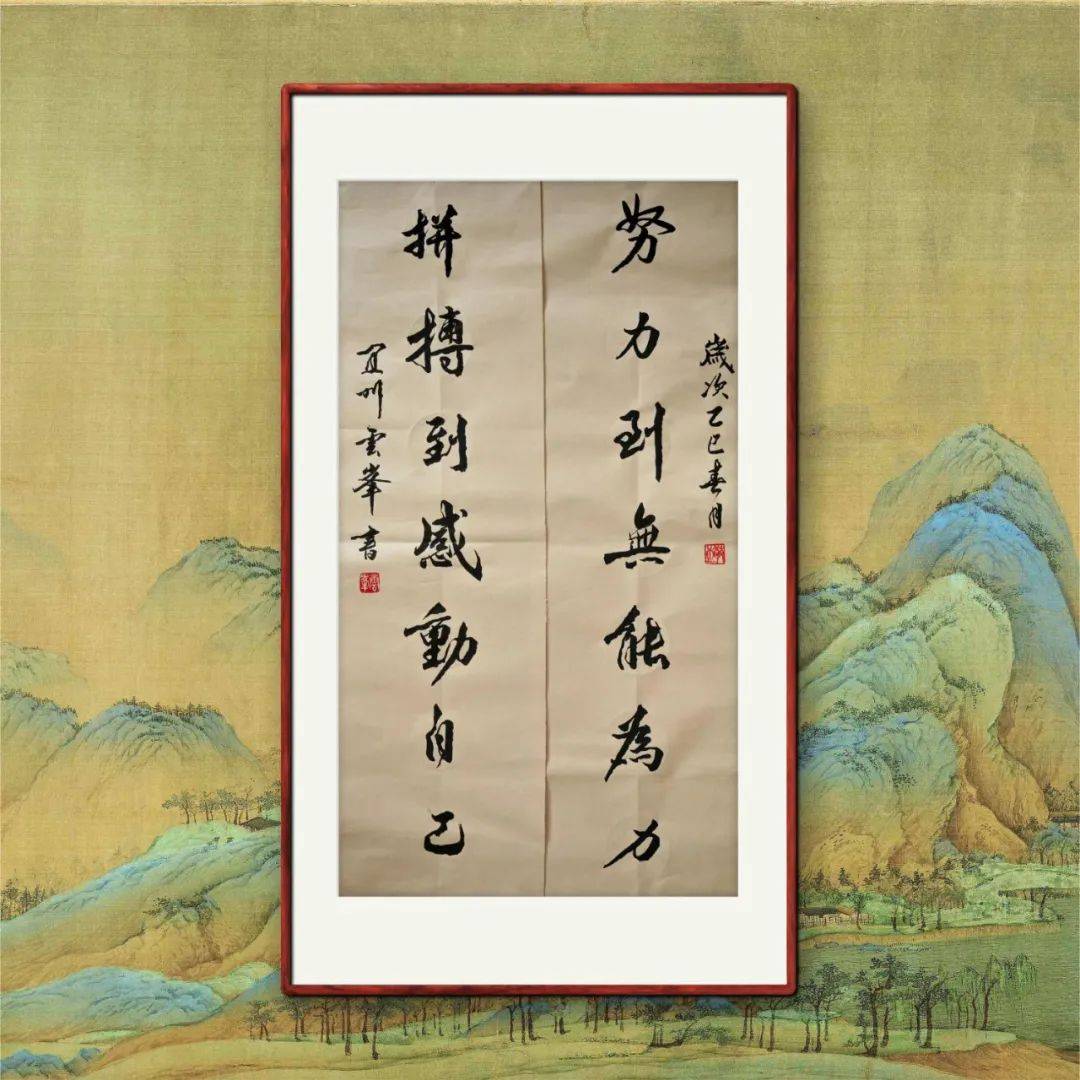 歲次乙巳春月
努力到無能為力
拼搏到感動自己
宜州雲峯書
雲峯